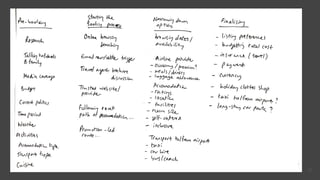 Pre-booking
Research
Telling husbands
& family
Media coverage
Budget
Current politics
Time period
Weather
Activities
Accommodation type
Transport type
Cuisine
Starting the
booking process
Online browsing
Email newsletter trigger
Travel agents brochure
discussion
Trusted website/
provider
Following email
path of accommodation...
Promotion-led
route...
Narrowing down
options
browsing dates/
availability
Airline provider
- economy/premium?
- meals/drinks
- luggage allowance
Accommodation
- ratings
- location
- facilities
- room size
- self-catered
- inclusive
Transport to/from airport
- taxi
- car hire
- bus/coach
Finalising
- listing preferences
- budgeting total cost
- insurance (travel)
- payment
- currency
- holiday clothes shop
- taxi to/from airport?
- long-stay car park?